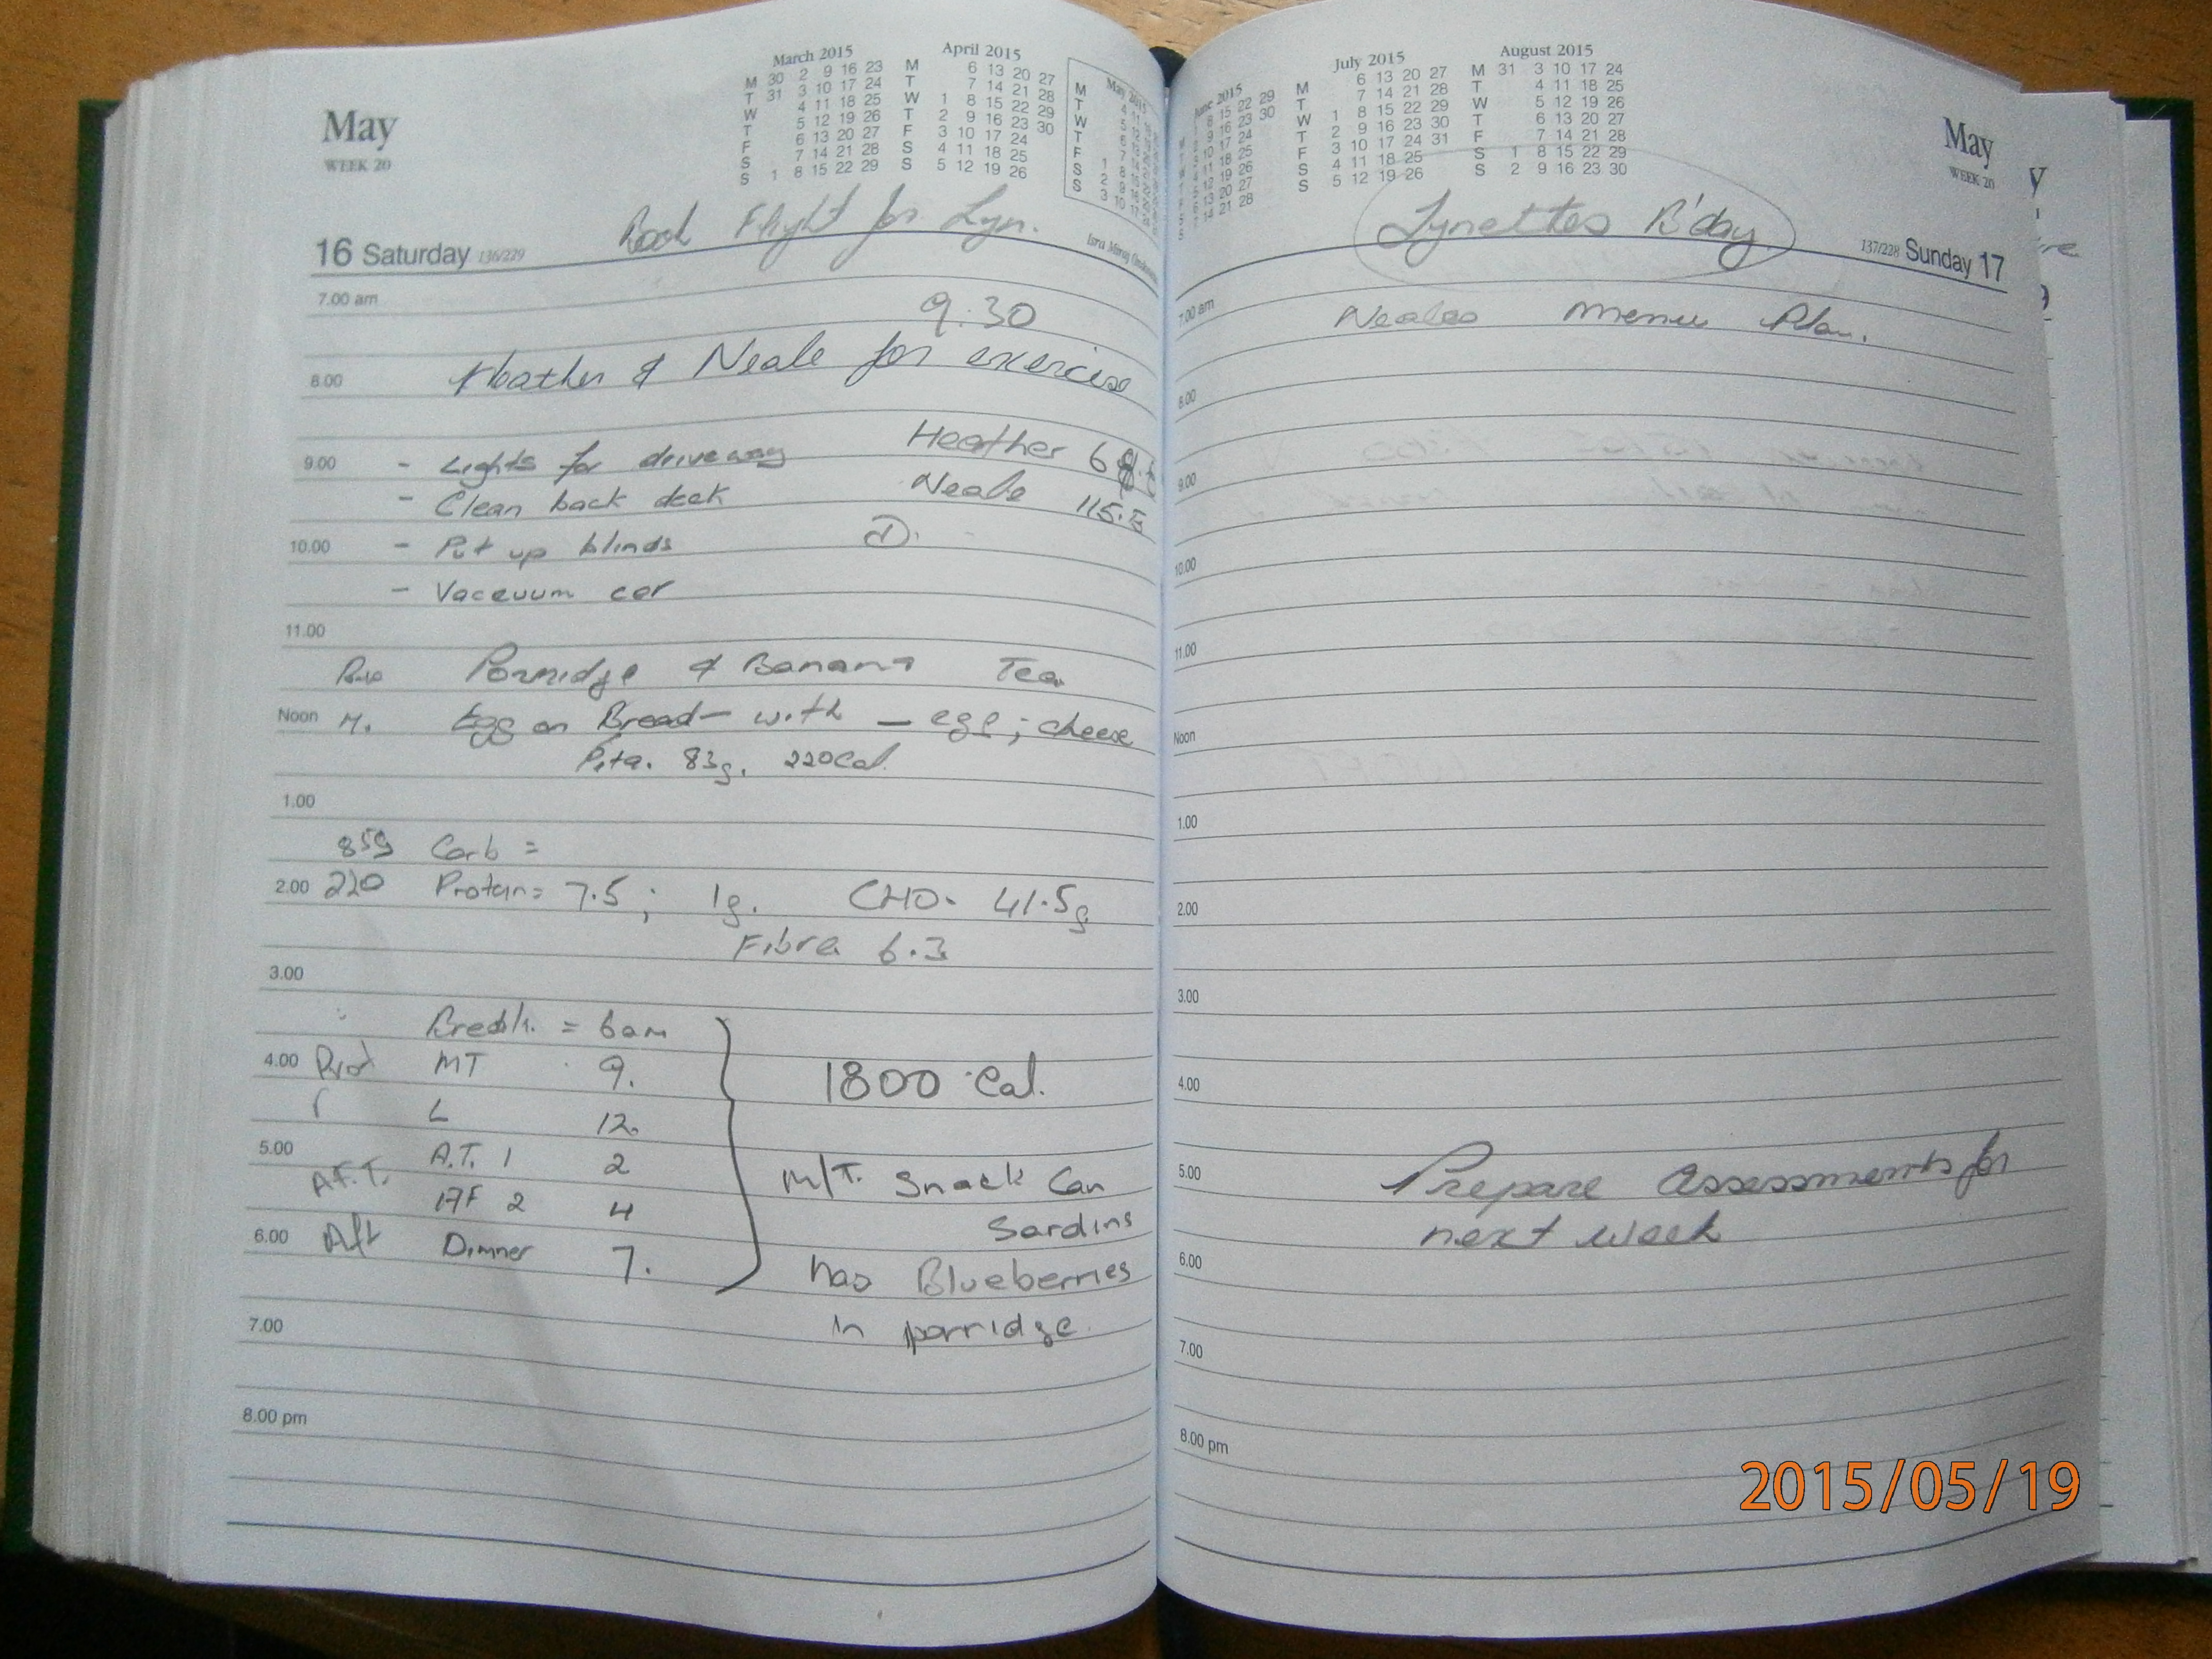 May
WEEK 20
March 2015
M 30 2 9 16 23
T 31 3 10 17 24
W 4 11 18 25
T 5 12 19 26
F 6 13 20 27
S 7 14 21 28
S 1 8 15 22 29
April 2015
M 6 13 20 27
T 7 14 21 28
W 1 8 15 22 29
T 2 9 16 23 30
F 3 10 17 24
S 4 11 18 25
S 5 12 19 26
May 2015
M
T
W
T
F
S
S
Book Flight for Lyn.
16 Saturday 136/229
7.00 am
9.30
8.00 Heather & Neale for exercise
9.00 - Lights for driveway Heather
- Clean back deck Neale 115.
10.00 - Put up blinds
- Vaceuum car
11.00
Porridge & Banana Tea
Noon M. Egg on Bread - with - egg; cheese
Pita. 83g. 220Cal.
1.00
85g Carb =
2.00 220 Protein= 7.5; 1g. CHO. 41.5g
Fibre 6.3
3.00
Breakf. = 6am
4.00 MT 9. 1800 Cal.
L 12.
5.00 A.T. 1 2
A.F.T. M/T. Snack Can
AF 2 4 Sardins
6.00 Aft Dinner 7.
has Blueberries
in porridge.
7.00
8.00 pm
June 2015
July 2015
M 6 13 20 27
T 7 14 21 28
W 1 8 15 22 29
T 2 9 16 23 30
F 3 10 17 24 31
S 4 11 18 25
S 5 12 19 26
August 2015
M 31 3 10 17 24
T 4 11 18 25
W 5 12 19 26
T 6 13 20 27
F 7 14 21 28
S 1 8 15 22 29
S 2 9 16 23 30
May
WEEK 20
Lynettes B'day
137/228 Sunday 17
7.00 am
Neales menu Plan.
8.00
9.00
10.00
11.00
Noon
1.00
2.00
3.00
4.00
5.00 Prepare assessments for
next week
6.00
7.00
8.00 pm
2015/05/19